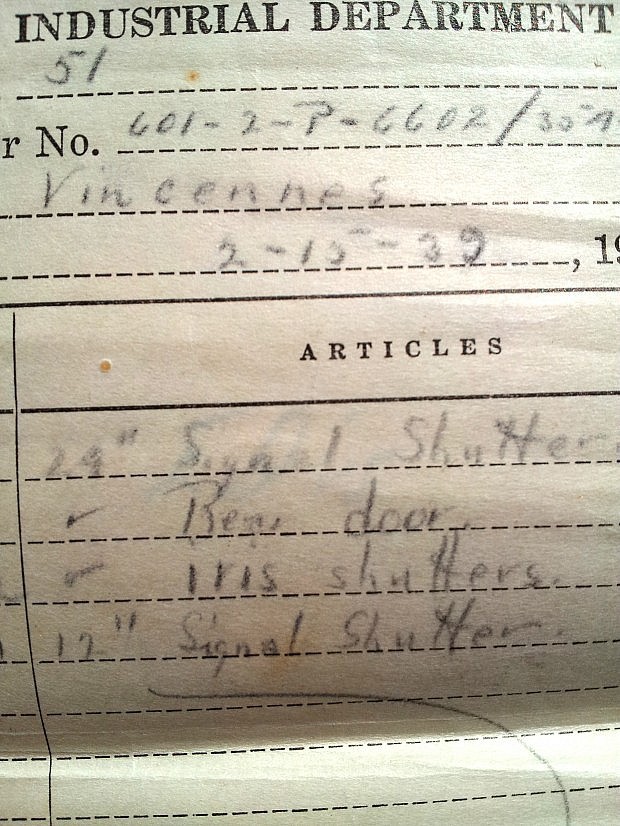 INDUSTRIAL DEPARTMENT
51
r No. 601-2-P-6602/
Vincennes
2-15-39, 19
ARTICLES
24" Signal Shutter.
door.
Iris shutters.
12" Signal Shutter.